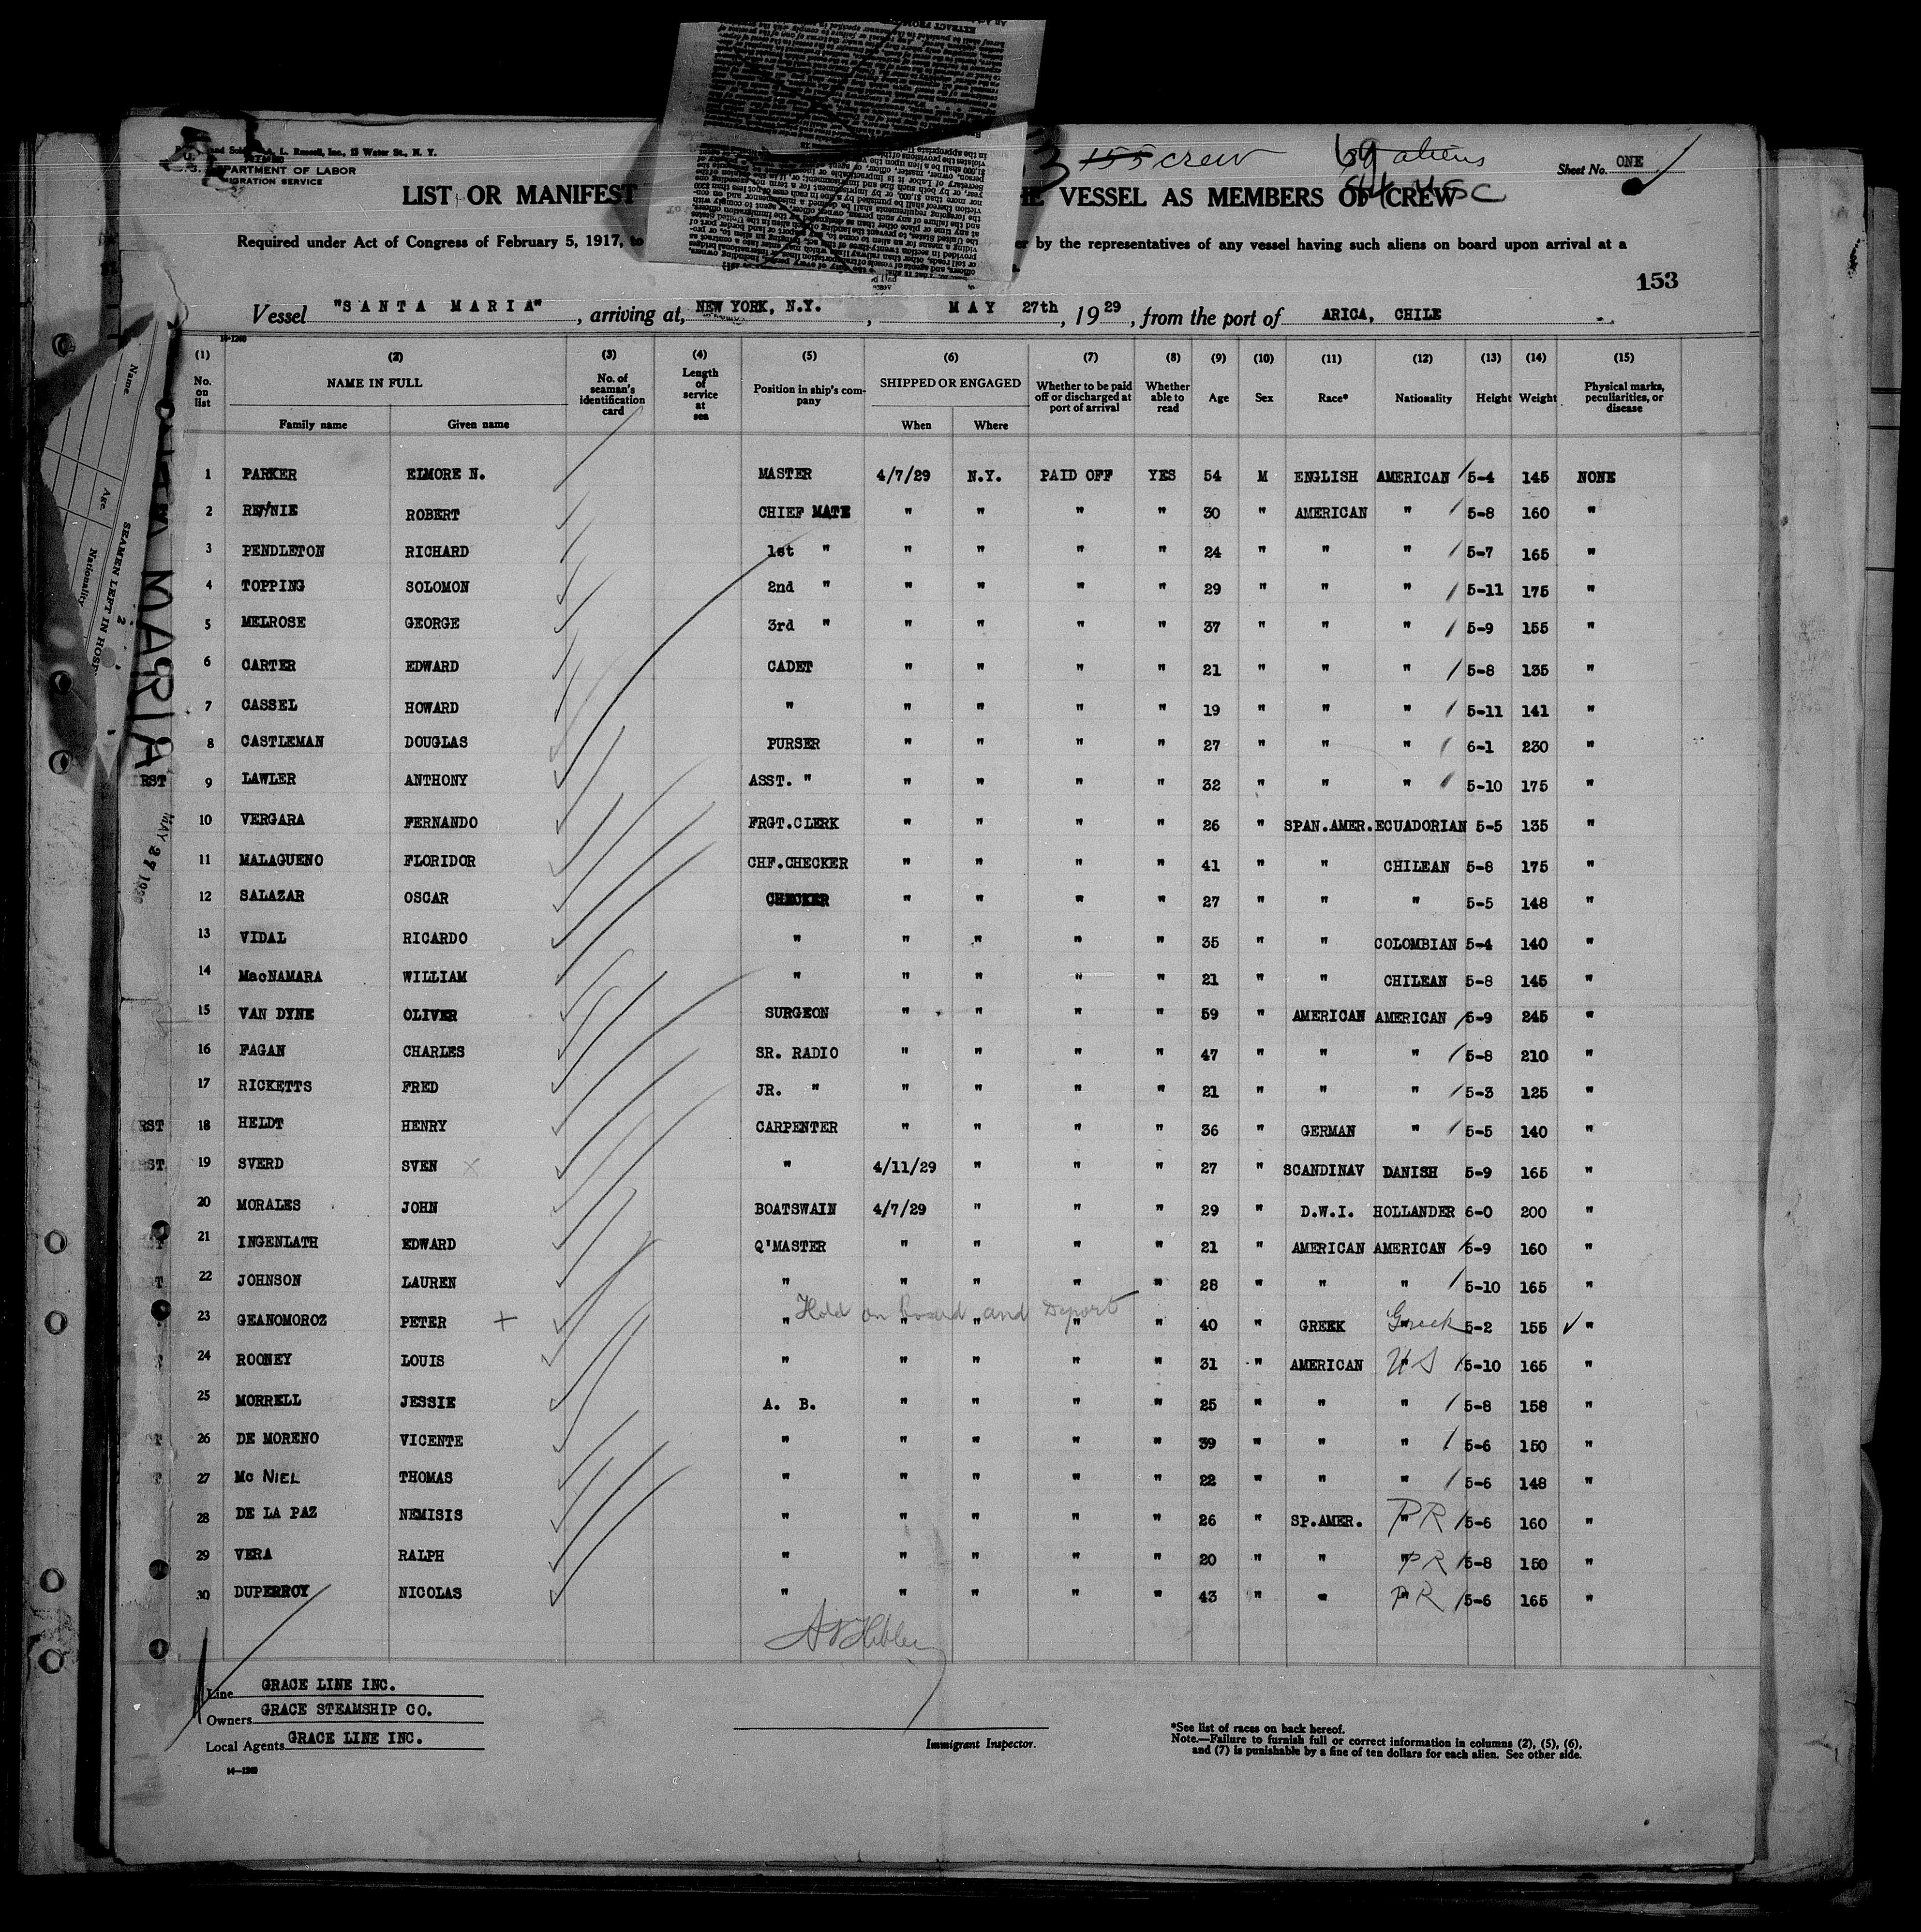 L. Russell, Inc., 13 Water St., N. Y.
DEPARTMENT OF LABOR
IMMIGRATION SERVICE
155 crew 69 aliens
84 USC
Sheet No. ONE
LIST OR MANIFEST THE VESSEL AS MEMBERS OF CREW
Required under Act of Congress of February 5, 1917, to by the representatives of any vessel having such aliens on board upon arrival at a
153
Vessel "SANTA MARIA", arriving at, NEW YORK, N.Y., MAY 27th, 1929, from the port of ARICA, CHILE
14-1240
(1) (2) (3) (4) (5) (6) (7) (8) (9) (10) (11) (12) (13) (14) (15)
No. on list NAME IN FULL No. of seaman's identification card Length of service at sea Position in ship's company SHIPPED OR ENGAGED Whether to be paid off or discharged at port of arrival Whether able to read Age Sex Race* Nationality Height Weight Physical marks, peculiarities, or disease
Family name Given name When Where
1 PARKER ELMORE N. MASTER 4/7/29 N.Y. PAID OFF YES 54 M ENGLISH AMERICAN 5-4 145 NONE
2 RENNIE ROBERT CHIEF MATE " " " " 30 " AMERICAN " 5-8 160 "
3 PENDLETON RICHARD 1st " " " " " 24 " " " 5-7 165 "
4 TOPPING SOLOMON 2nd " " " " " 29 " " " 5-11 175 "
5 MELROSE GEORGE 3rd " " " " " 37 " " " 5-9 155 "
6 CARTER EDWARD CADET " " " " 21 " " " 5-8 135 "
7 CASSEL HOWARD " " " " " 19 " " " 5-11 141 "
8 CASTLEMAN DOUGLAS PURSER " " " " 27 " " " 6-1 230 "
9 LAWLER ANTHONY ASST. " " " " " 32 " " " 5-10 175 "
10 VERGARA FERNANDO FRGT.CLERK " " " " 26 " SPAN.AMER. ECUADORIAN 5-5 135 "
11 MALAGUENO FLORIDOR CHF.CHECKER " " " " 41 " " CHILEAN 5-8 175 "
12 SALAZAR OSCAR CHECKER " " " " 27 " " " 5-5 148 "
13 VIDAL RICARDO " " " " " 35 " " COLOMBIAN 5-4 140 "
14 MacNAMARA WILLIAM " " " " " 21 " " CHILEAN 5-8 145 "
15 VAN DYNE OLIVER SURGEON " " " " 59 " AMERICAN AMERICAN 5-9 245 "
16 FAGAN CHARLES SR. RADIO " " " " 47 " " " 5-8 210 "
17 RICKETTS FRED JR. " " " " " 21 " " " 5-3 125 "
18 HELDT HENRY CARPENTER " " " " 36 " GERMAN " 5-5 140 "
19 SVERD SVEN " 4/11/29 " " " 27 " SCANDINAV DANISH 5-9 165 "
20 MORALES JOHN BOATSWAIN 4/7/29 " " " 29 " D.W.I. HOLLANDER 6-0 200 "
21 INGENLATH EDWARD Q'MASTER " " " " 21 " AMERICAN AMERICAN 5-9 160 "
22 JOHNSON LAUREN " " " " " 28 " " " 5-10 165 "
Hold on board and Deport
23 GEANOMOROZ PETER + " " " " " 40 " GREEK Greek 5-2 155 "
24 ROONEY LOUIS " " " " " 31 " AMERICAN US 5-10 165 "
25 MORRELL JESSIE A. B. " " " " 25 " " " 5-8 158 "
26 DE MORENO VICENTE " " " " " 39 " " " 5-6 150 "
27 Mc NIEL THOMAS " " " " " 22 " " " 5-6 148 "
28 DE LA PAZ NEMISIS " " " " " 26 " SP.AMER. PR 5-6 160 "
29 VERA RALPH " " " " " 20 " " PR 5-8 150 "
30 DUPERROY NICOLAS " " " " " 43 " " PR 5-6 165 "
Line GRACE LINE INC.
Owners GRACE STEAMSHIP CO.
Local Agents GRACE LINE INC.
Immigrant Inspector.
*See list of races on back hereof.
Note.—Failure to furnish full or correct information in columns (2), (5), (6),
and (7) is punishable by a fine of ten dollars for each alien. See other side.
14—1240
MARIA
MAY 27 1929
Name
Age.
Nationality
SEAMEN LEFT IN HOSP